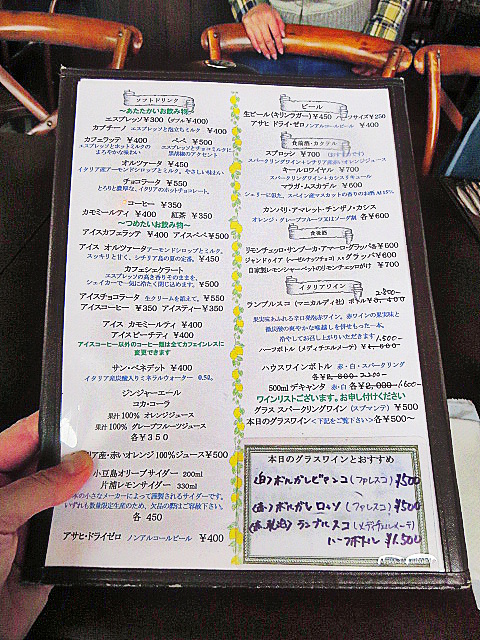 ソフトドリンク
～あたたかいお飲み物～
エスプレッソ¥300 (ダブル¥400)
カプチーノ エスプレッソと泡立ちミルク ¥400
カフェラッテ ¥400 ペペ ¥500
エスプレッソとホットミルクの
まろやかな味わい
エスプレッソとチョコミルクに
黒胡椒のアクセント
オルツァータ ¥450
イタリア産アーモンドシロップとミルク。やさしい味わい
チョコラータ ¥550
とろりと濃厚な、イタリアのホットチョコレート。
コーヒー ¥350
カモミールティ ¥400 紅茶 ¥350
～つめたいお飲み物～
アイスカフェラッテ ¥400 アイスペペ¥500
アイス オルツァータアーモンドシロップとミルク。
スッキリと甘く、シチリア島の夏の定番。 ¥450
カフェシェケラート
エスプレッソの高き香りそのままを、
シェイカーで一気に冷たく閉じ込めます。 ¥500
アイスチョコラータ 生クリームを添えて。 ¥550
アイスコーヒー ¥350 アイスティー¥350
アイス カモミールティ ¥400
アイス ピーチティ ¥400
アイスコーヒー以外のコーヒー類は全てカフェインレスに
変更できます
サン・ベネデット ¥400
イタリア産炭酸入りミネラルウォーター 0.5ℓ
ジンジャーエール
コカ・コーラ
果汁100% オレンジジュース
果汁100% グレープフルーツジュース
各¥350
産・赤いオレンジ100%ジュース¥500
小豆島オリーブサイダー 200ml
片浦レモンサイダー 330ml
本の小さなメーカーによって謹製されるサイダーです。
いずれも数量限定生産のため、欠品の際はご容赦下さい。
各 450
アサヒ・ドライゼロ ノンアルコールビール ¥400
ビール
生ビール(キリンラガー) ¥450 ハーフサイズ¥250
アサヒ ドライ・ゼロノンアルコールビール ¥400
食前酒・カクテル
スプロッシ ¥700
スパークリングワイン+シチリア産赤いオレンジジュース
キールロワイヤル ¥700
スパークリングワイン+カシスリキュール
マラガ・ムスカテル ¥600
シェリーに似た、スペイン産マスカットの香りのお酒 Al 15%
カンパリ・アマレット・チンザノ・カシス
オレンジ・グレープフルーツ又はソーダ割 各¥600
食後酒
リモンチェッロ・サンブーカ・アマーロ・グラッパ各¥600
ジャンドゥイア (ヘーゼルナッツチョコ) グラッパ¥600
自家製レモンシャーベットのリモンチェッロがけ ¥700
イタリアワイン
2.800-
ランブルスコ (マニカルディ社) ボトル
果実味あふれる辛口発泡赤ワイン。赤ワインの果実味と
微炭酸の爽やかな喉越しを併せもった一本。
冷やしてお召し上がりいただきます
1.500-
ハーフボトル (メディチエルメーテ) ¥1,600
ハウスワインボトル 赤・白・スパークリング
各¥2,800 2.200-
500ml デキャンタ 赤・白 各¥2,000 1.600-
ワインリストございます。お申し付けください
グラス スパークリングワイン (スプマンテ) ¥500
本日のグラスワイン<下記をご覧下さい> 各¥500～
本日のグラスワインとおすすめ
(白) ボルガレビアンコ (ファレスコ) ¥500
(赤) ボルガレロッソ (ファレスコ) ¥500
ランブルスコ (メディチエルメーテ)
ハーフボトル ¥1.500